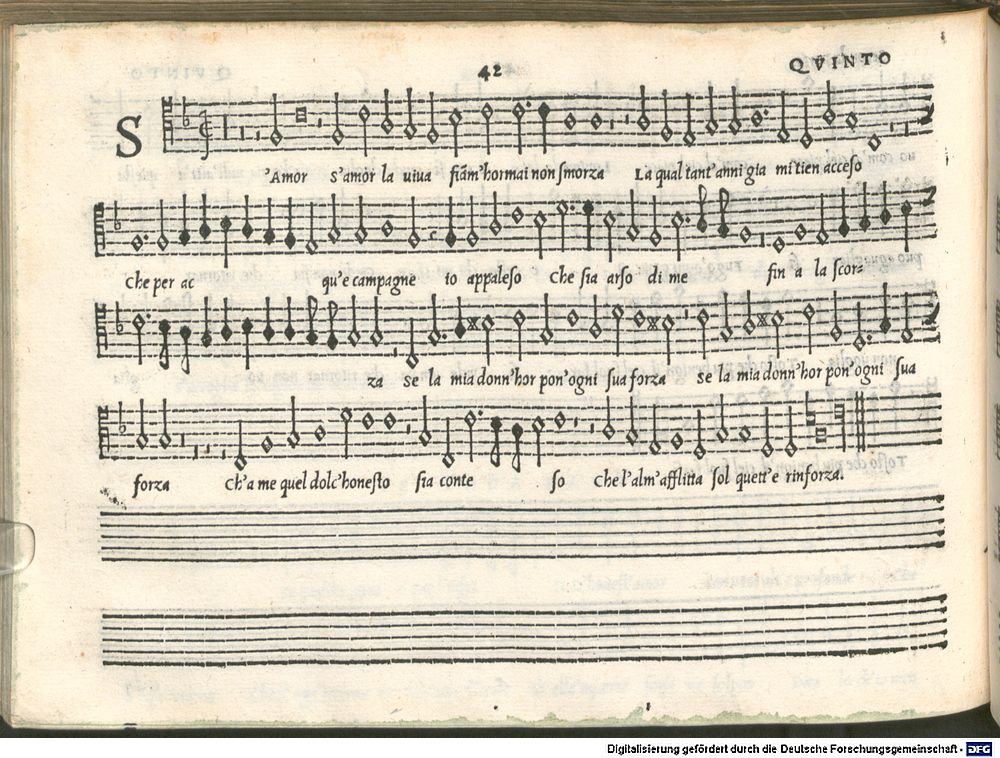 42
QVINTO
S
'Amor s'amor la uiua fiam'hormai non smorza La qual tant'anni gia mi tien acceso
Che per ac qu'e campagne io appaleso Che sia arso di me fin a la scor=
za se la mia donn'hor pon'ogni sua forza se la mia donn'hor pon'ogni sua
forza Ch'a me quel dolc'honesto sia conte so Che l'alm'afflitta sol quett'e rinforza.
Digitalisierung gefördert durch die Deutsche Forschungsgemeinschaft - DFG